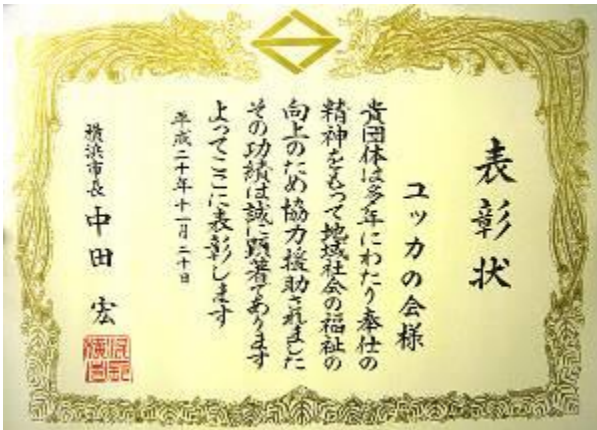 表彰状
ユッカの会様
貴団体は多年にわたり奉仕の
精神をもって地域社会の福祉の
向上のため協力援助されました
その功績は誠に顕著であります
よってここに表彰します
平成二十年十一月二十日
横浜市長 中田 宏